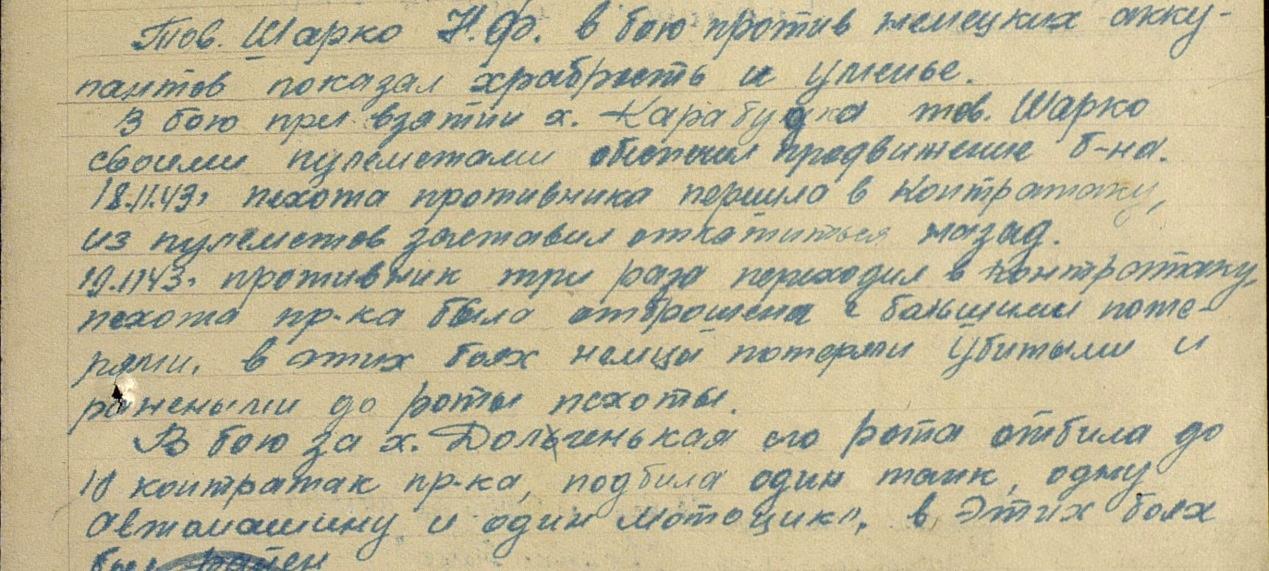 Тов. Шарко Н.Ф. в бою против немецких окку-
пантов показал храбрость и уменье.
В бою при взятии х. Карабудка тов. Шарко
своими пулеметами обеспечил продвижение б-на.
18.11.43г пехота противника перешла в контратаку,
из пулеметов заставил откатиться назад.
19.11.43г противник три раза переходил в контратаку,
пехота пр-ка была отброшена с большими поте-
рями, в этих боях немцы потеряли убитыми и
ранеными до роты пехоты.
В бою за х. Долгенькая его рота отбила до
10 контратак пр-ка, подбила один танк, одну
автомашину и один мотоцикл, в этих боях
был ранен